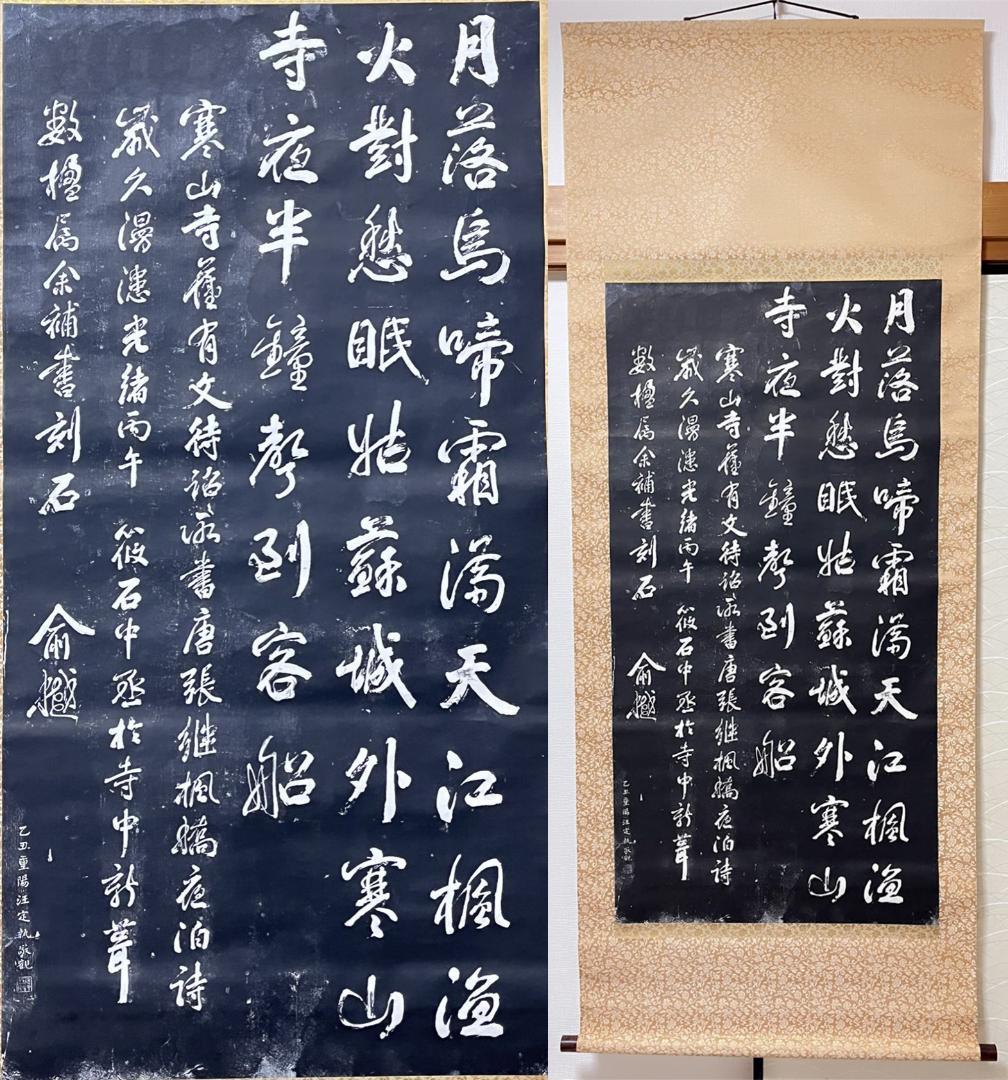 月落烏啼霜滿天江楓漁
火對愁眠姑蘇城外寒山
寺夜半鐘聲到客船
寒山寺舊有文待詔所書唐張繼楓橋夜泊詩
歲久漫漶光緒丙午 筱石中丞於寺中新葺
數楹属余補書刻石 俞樾
乙丑重陽汪定執敬觀
月落烏啼霜滿天江楓漁
火對愁眠姑蘇城外寒山
寺夜半鐘聲到客船
寒山寺舊有文待詔所書唐張繼楓橋夜泊詩
歲久漫漶光緒丙午 筱石中丞於寺中新葺
數楹属余補書刻石 俞樾
乙丑重陽汪定執敬觀